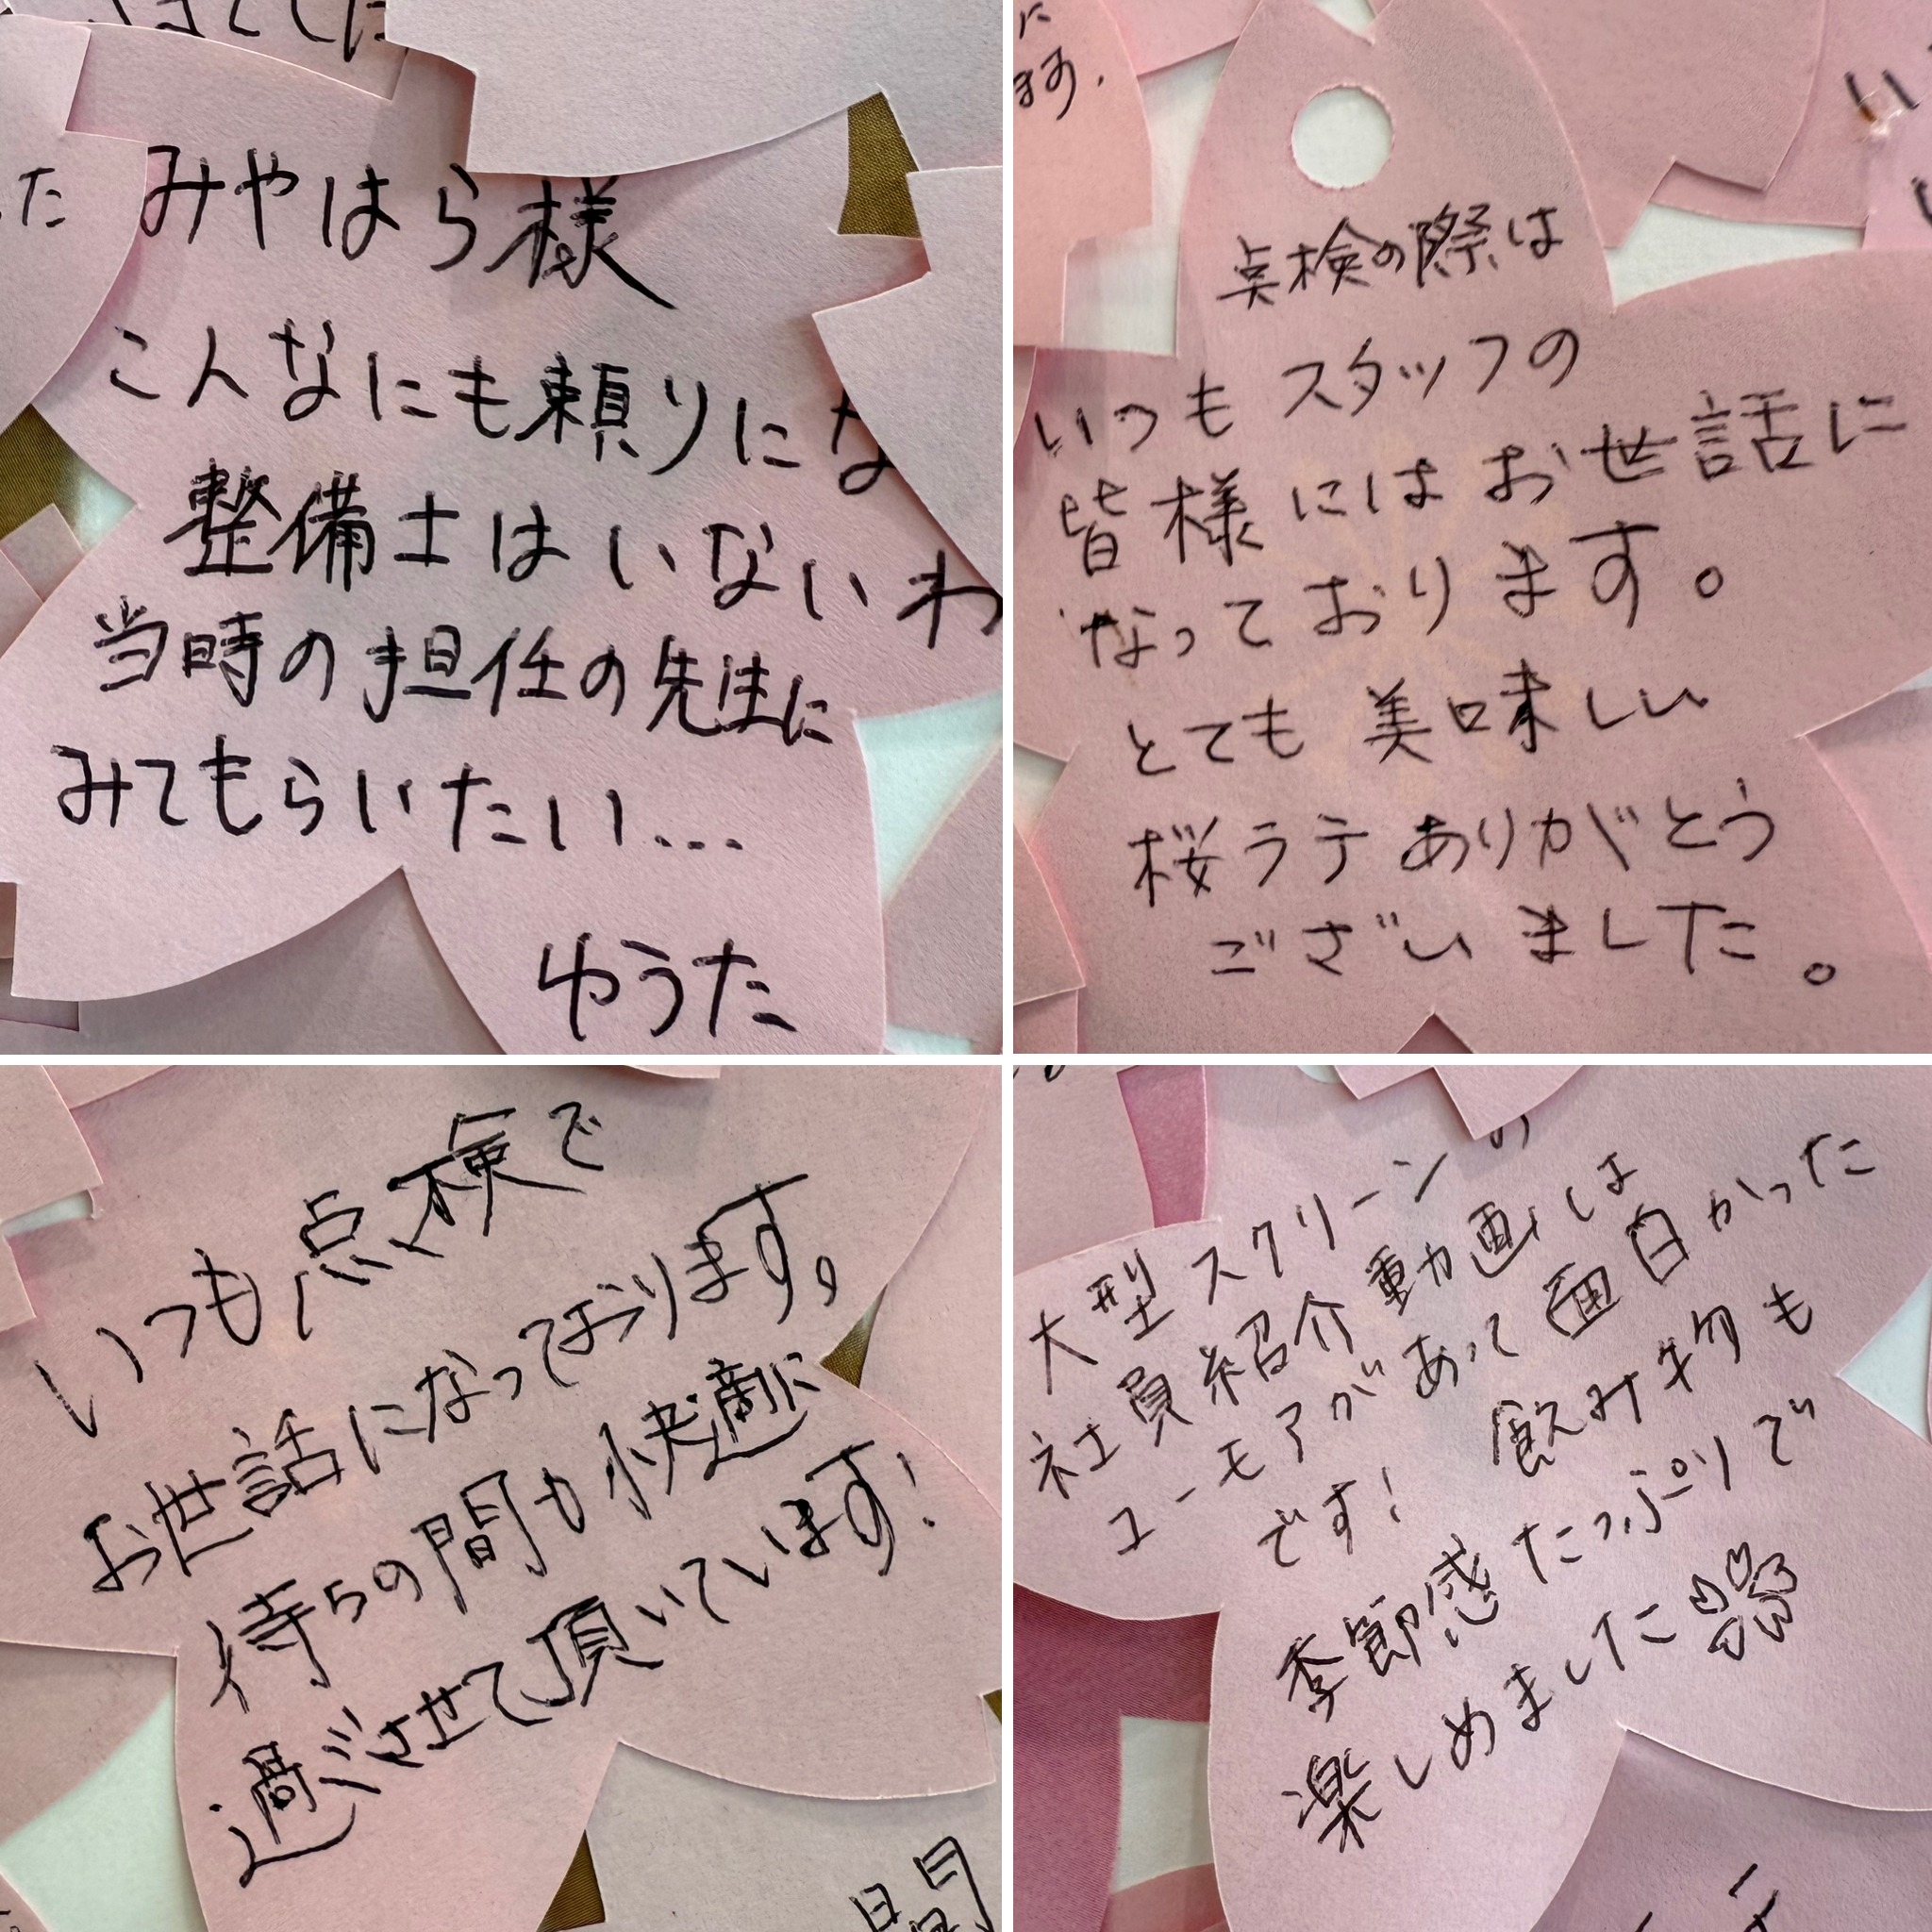 みやはら様
こんなにも頼りにな
整備士はいないわ
当時の担任の先生に
みてもらいたい...
ゆうた
点検の際は
いつもスタッフの
皆様にはお世話に
なっております。
とても美味しい
桜ラテありがとう
ございました。
いつも点検で
お世話になっております。
待ちの間も快適に
過ごさせて頂いています!
大型スクリーンの
社員紹介動画は
ユーモアがあって面白かった
です! 飲み物も
季節感たっぷりで
楽しめました
ます.
た
間